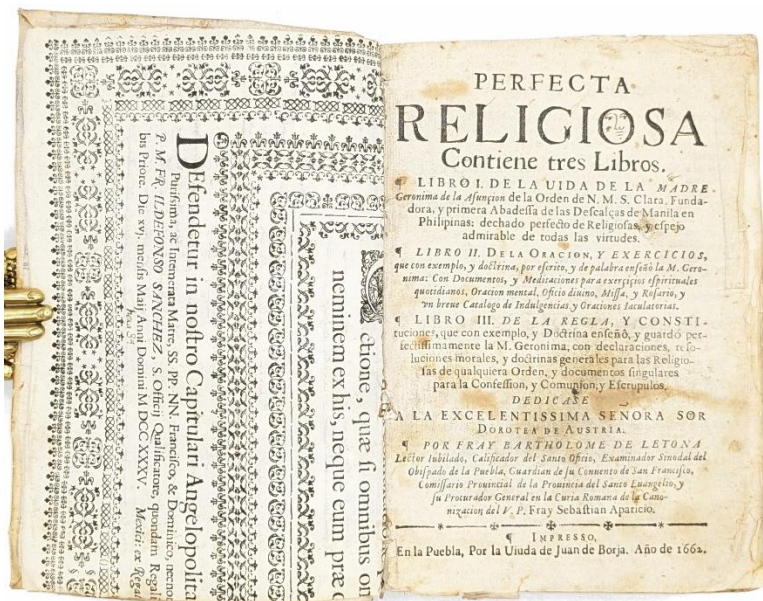 DEfendetur in nostro Capitulari Angelopolita
Purissima, ac Intemerata Matre, SS. PP. NN. Francisco, & Dominico, necnon
P. M. FR. ILDEFONSO SANCHEZ, S. Officij Qualificatore, quondam Regali
bis Priore. Die xvj. mensis Maij Anni Domini M. DCC XXXV. Mexici: ex Regal
ctione, quæ si omnibus on
neminem ex his, neque eum præ c
PERFECTA
RELIGIOSA
Contiene tres Libros.
¶ LIBRO I. DE LA UIDA DE LA MADRE
Geronima de la Asunçion de la Orden de N. M. S. Clara, Funda-
dora, y primera Abadessa de las Descalças de Manila en
Philipinas: dechado perfecto de Religiosas, y espejo
admirable de todas las virtudes.
¶ LIBRO II. DE LA ORACION, Y EXERCICIOS,
que con exemplo, y doctrina, por escrito, y de palabra enseñò la M. Gero-
nima: Con Documentos, y Meditaciones para exerçiçios espirituales
quotidianos, Oracion mental, Oficio diuino, Missa, y Rosario, y
vn breue Catalogo de Indulgencias, y Oraciones Iaculatorias.
¶ LIBRO III. DE LA REGLA, Y CONSTI-
tuciones, que con exemplo, y Doctrina enseñò, y guardò per-
fectissimamente la M. Geronima, con declaraciones, reso-
luciones morales, y doctrinas generales para las Religio-
sas de qualquiera Orden, y documentos singulares
para la Confession, y Comunion, y Escrupulos.
DEDICASE
A LA EXCELENTISSIMA SEÑORA SOR
DOROTEA DE AUSTRIA.
¶ POR FRAY BARTHOLOME DE LETONA
Lector Iubilado, Calificador del Santo Oficio, Examinador Sinodal del
Obispado de la Puebla, Guardian de su Conuento de San Francisco,
Comissario Prouincial de la Prouincia del Santo Euangelio, y
su Procurador General en la Curia Romana de la Cano-
nizacion del V. P. Fray Sebastian Aparicio.
¶ IMPRESSO,
En la Puebla, Por la Uiuda de Juan de Borja. Año de 1662.